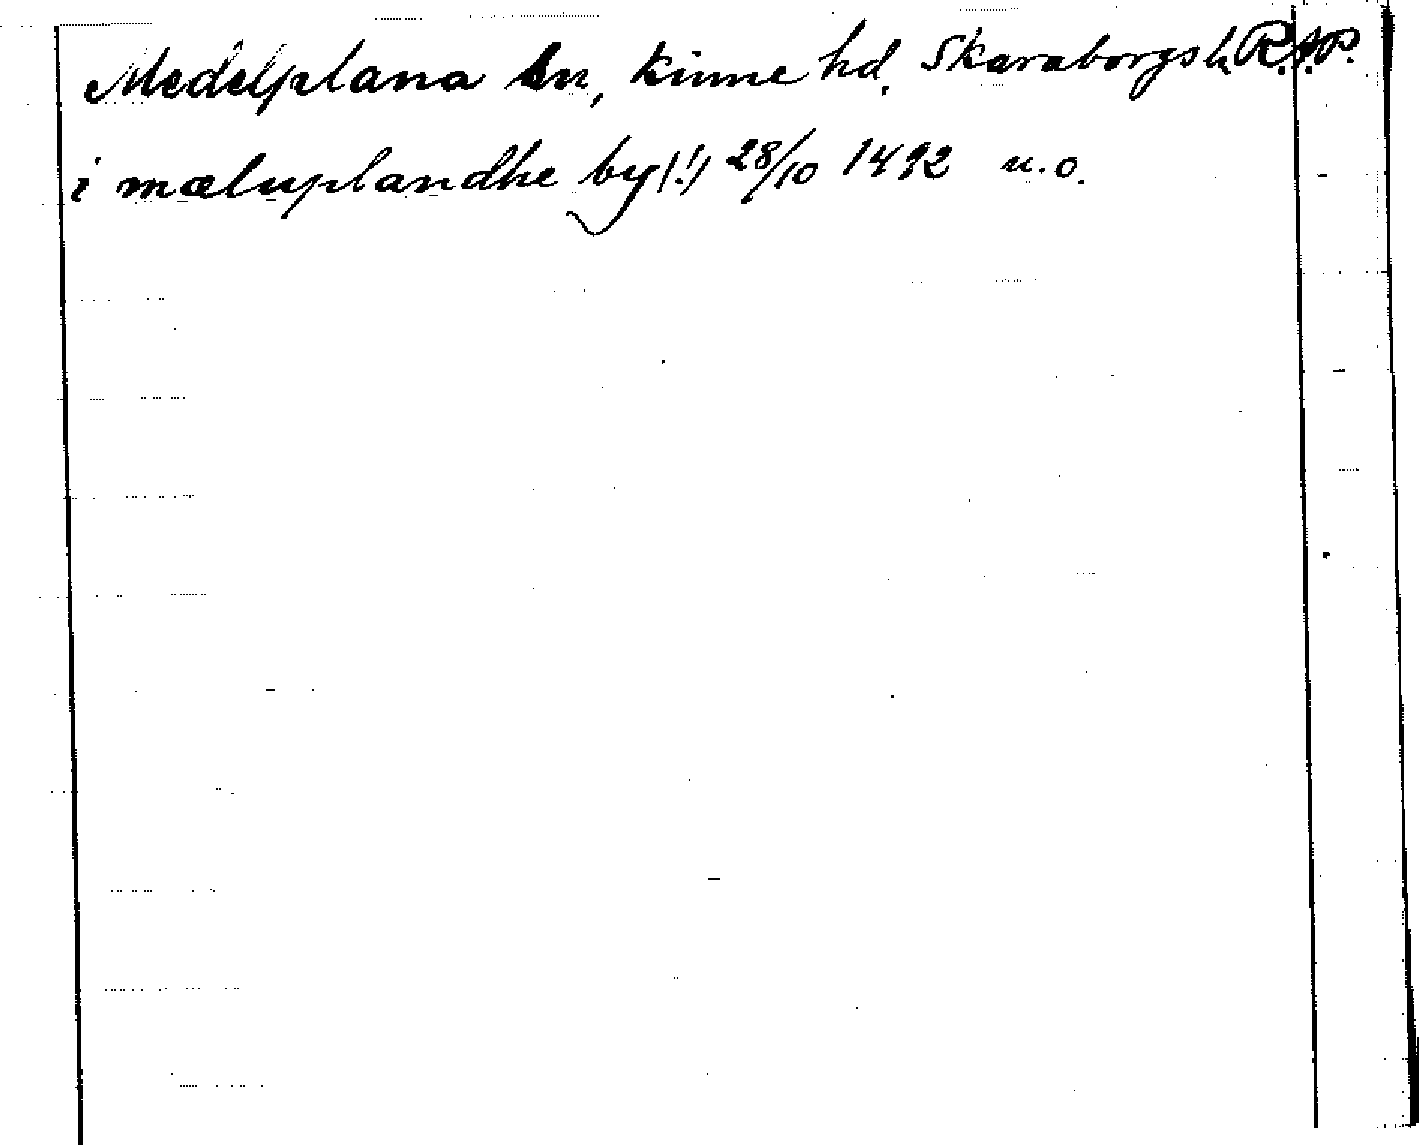 Medelplana sn, Kinne hd. Skaraborgs l. R.A.P.
i mæluplandhe by (!) 28/10 1492 u.o.